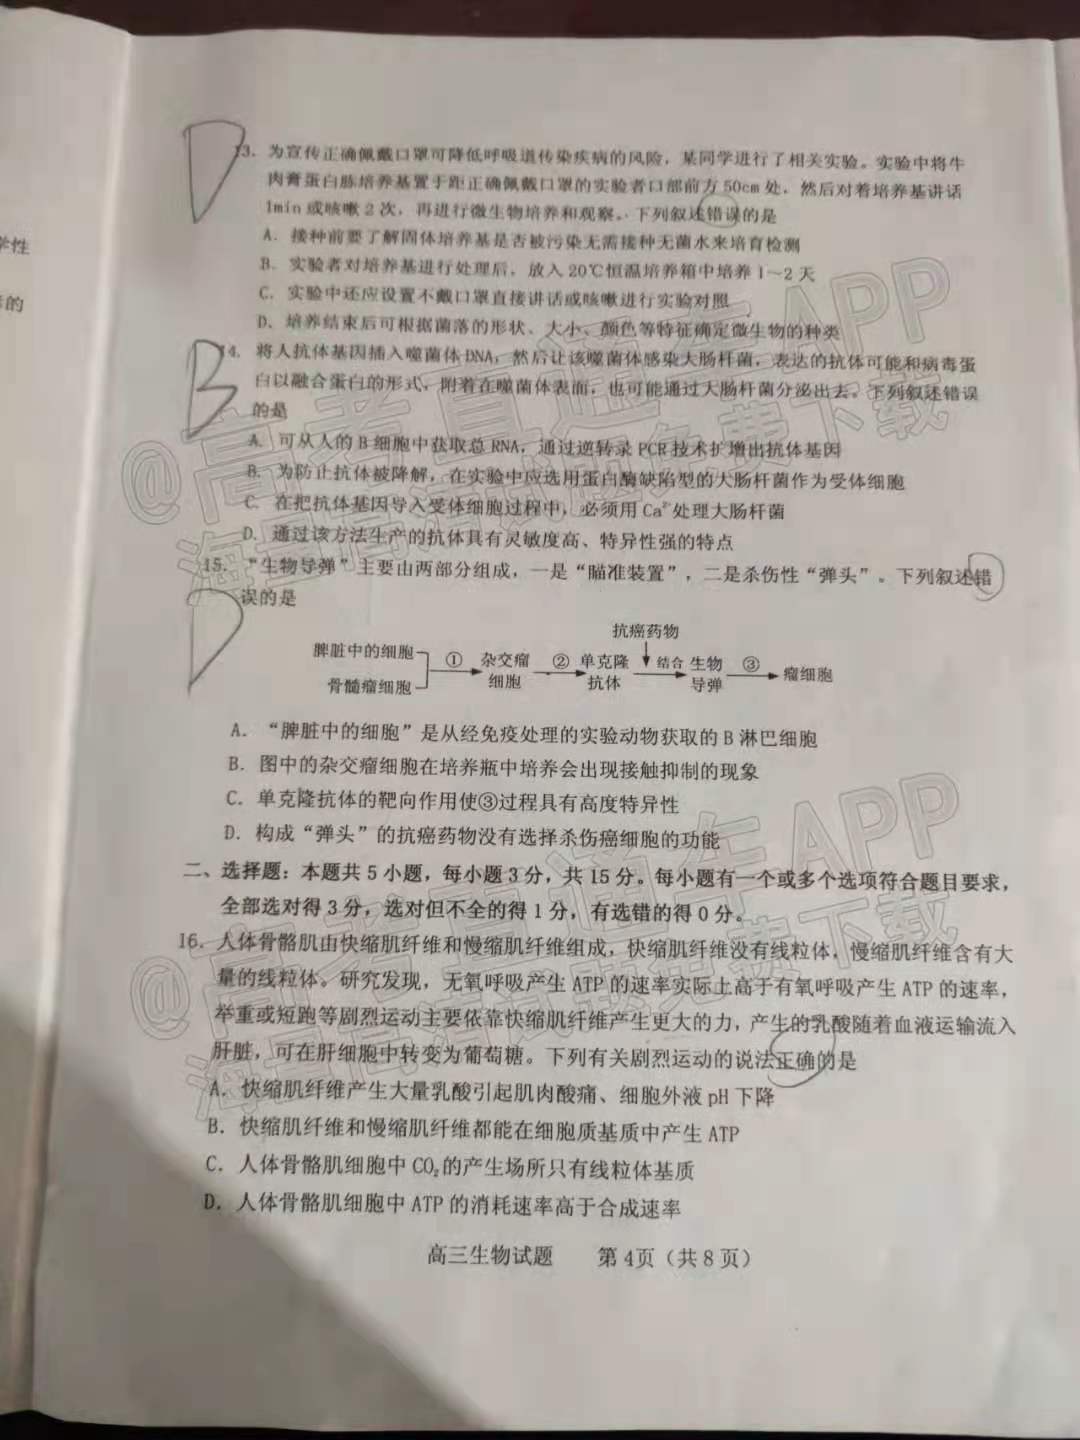 学性
D
13. 为宣传正确佩戴口罩可降低呼吸道传染疾病的风险，某同学进行了相关实验。实验中将牛
肉膏蛋白胨培养基置于距正确佩戴口罩的实验者口部前方50cm处，然后对着培养基讲话
1min或咳嗽2次，再进行微生物培养和观察。下列叙述错误的是
A. 接种前要了解固体培养基是否被污染无需接种无菌水来培育检测
B. 实验者对培养基进行处理后，放入20℃恒温培养箱中培养1～2天
C. 实验中还应设置不戴口罩直接讲话或咳嗽进行实验对照
D. 培养结束后可根据菌落的形状、大小、颜色等特征确定微生物的种类
B
14. 将人抗体基因插入噬菌体DNA，然后让该噬菌体感染大肠杆菌，表达的抗体可能和病毒蛋
白以融合蛋白的形式，附着在噬菌体表面，也可能通过大肠杆菌分泌出去。下列叙述错误
的是
A. 可从人的B细胞中获取总RNA，通过逆转录PCR技术扩增出抗体基因
B. 为防止抗体被降解，在实验中应选用蛋白酶缺陷型的大肠杆菌作为受体细胞
C. 在把抗体基因导入受体细胞过程中，必须用Ca²⁺处理大肠杆菌
D. 通过该方法生产的抗体具有灵敏度高、特异性强的特点
15. “生物导弹”主要由两部分组成，一是“瞄准装置”，二是杀伤性“弹头”。下列叙述错
误的是
D
抗癌药物
脾脏中的细胞 ① 杂交瘤 ② 单克隆 结合 生物 ③ 瘤细胞
骨髓瘤细胞 细胞 抗体 导弹
A. “脾脏中的细胞”是从经免疫处理的实验动物获取的B淋巴细胞
B. 图中的杂交瘤细胞在培养瓶中培养会出现接触抑制的现象
C. 单克隆抗体的靶向作用使③过程具有高度特异性
D. 构成“弹头”的抗癌药物没有选择杀伤癌细胞的功能
二、选择题：本题共5小题，每小题3分，共15分。每小题有一个或多个选项符合题目要求，
全部选对得3分，选对但不全的得1分，有选错的得0分。
16. 人体骨骼肌由快缩肌纤维和慢缩肌纤维组成，快缩肌纤维没有线粒体，慢缩肌纤维含有大
量的线粒体。研究发现，无氧呼吸产生ATP的速率实际上高于有氧呼吸产生ATP的速率，
举重或短跑等剧烈运动主要依靠快缩肌纤维产生更大的力，产生的乳酸随着血液运输流入
肝脏，可在肝细胞中转变为葡萄糖。下列有关剧烈运动的说法正确的是
A. 快缩肌纤维产生大量乳酸引起肌肉酸痛、细胞外液pH下降
B. 快缩肌纤维和慢缩肌纤维都能在细胞质基质中产生ATP
C. 人体骨骼肌细胞中CO₂的产生场所只有线粒体基质
D. 人体骨骼肌细胞中ATP的消耗速率高于合成速率
高三生物试题 第4页（共8页）
@高考直通车APP
海量高清试题免费下载
@高考直通车APP
海量高清试题免费下载